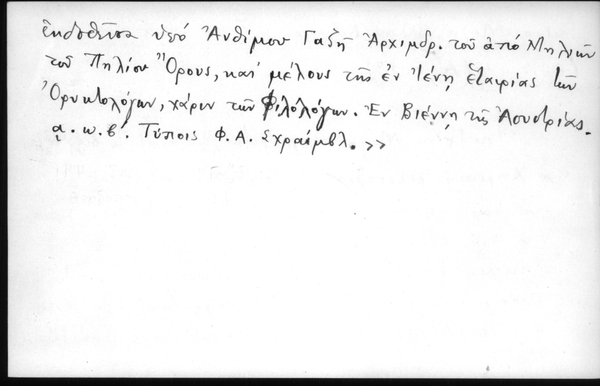 ἐκδοθεῖσα ὑπό Ἀνθίμου Γαζῆ Ἀρχιμδρ. τοῦ ἀπό Μηλεῶν
τοῦ Πηλίου Ὄρους, καί μέλους τῆς ἐν Ἰένῃ ἑταιρίας τῶν
Ὀρυκτολόγων, χάριν τῶν Φιλολόγων. Ἐν Βιέννῃ τῆς Ἀουστρίας.
α. ω. β. Τύποις Φ. Α. Σχραίμβλ. >>